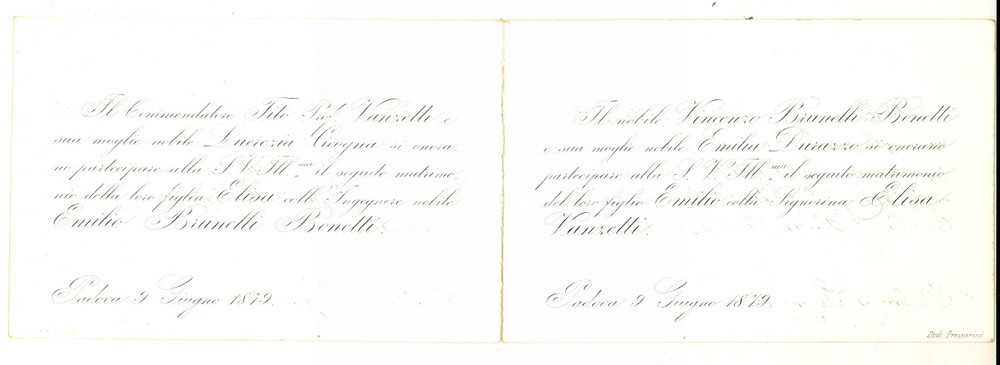 Il Commendatore Tito Prof. Vanzetti e
sua moglie nobile Lucrezia Cicogna si onora-
no partecipare alla S. V. Ill.ma il seguito matrimo-
nio della loro figlia Elisa coll' Ingegnere nobile
Emilio Brunelli Bonetti.
Padova 9 Giugno 1879.
Il nobile Vincenzo Brunelli Bonetti
e sua moglie nobile Emilia Durazzo si onorano
partecipare alla S. V. Ill.ma il seguito matrimonio
del loro figlio Emilio colla Signorina Elisa
Vanzetti.
Padova 9 Giugno 1879.
Prosperini